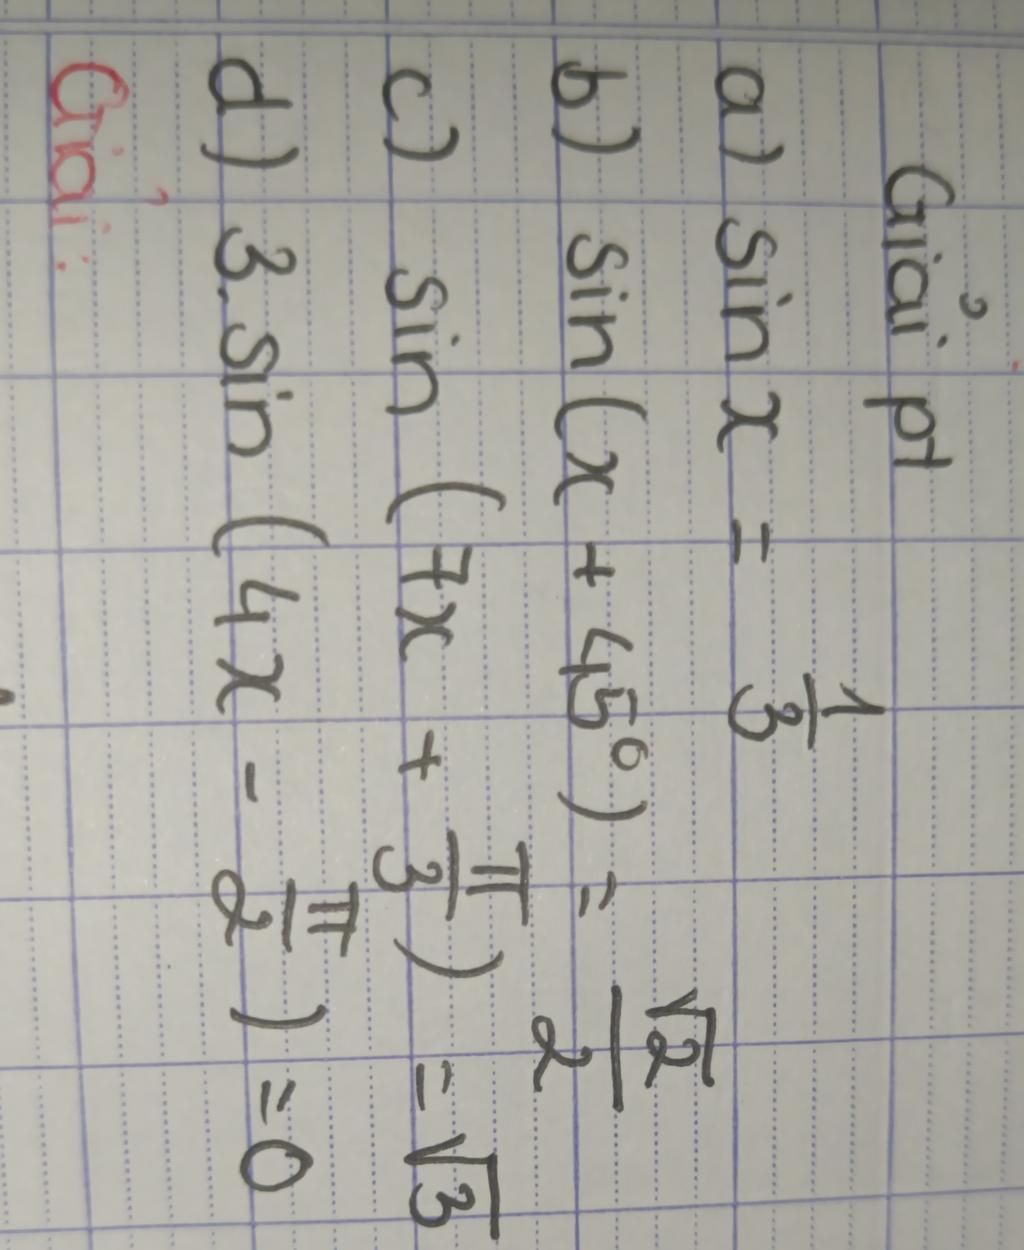 Giải pt
a) sin x = 1/3
b) sin (x + 45°) = √2/2
c) sin (7x + π/3) = √3
d) 3.sin (4x - π/2) = 0
Giải: